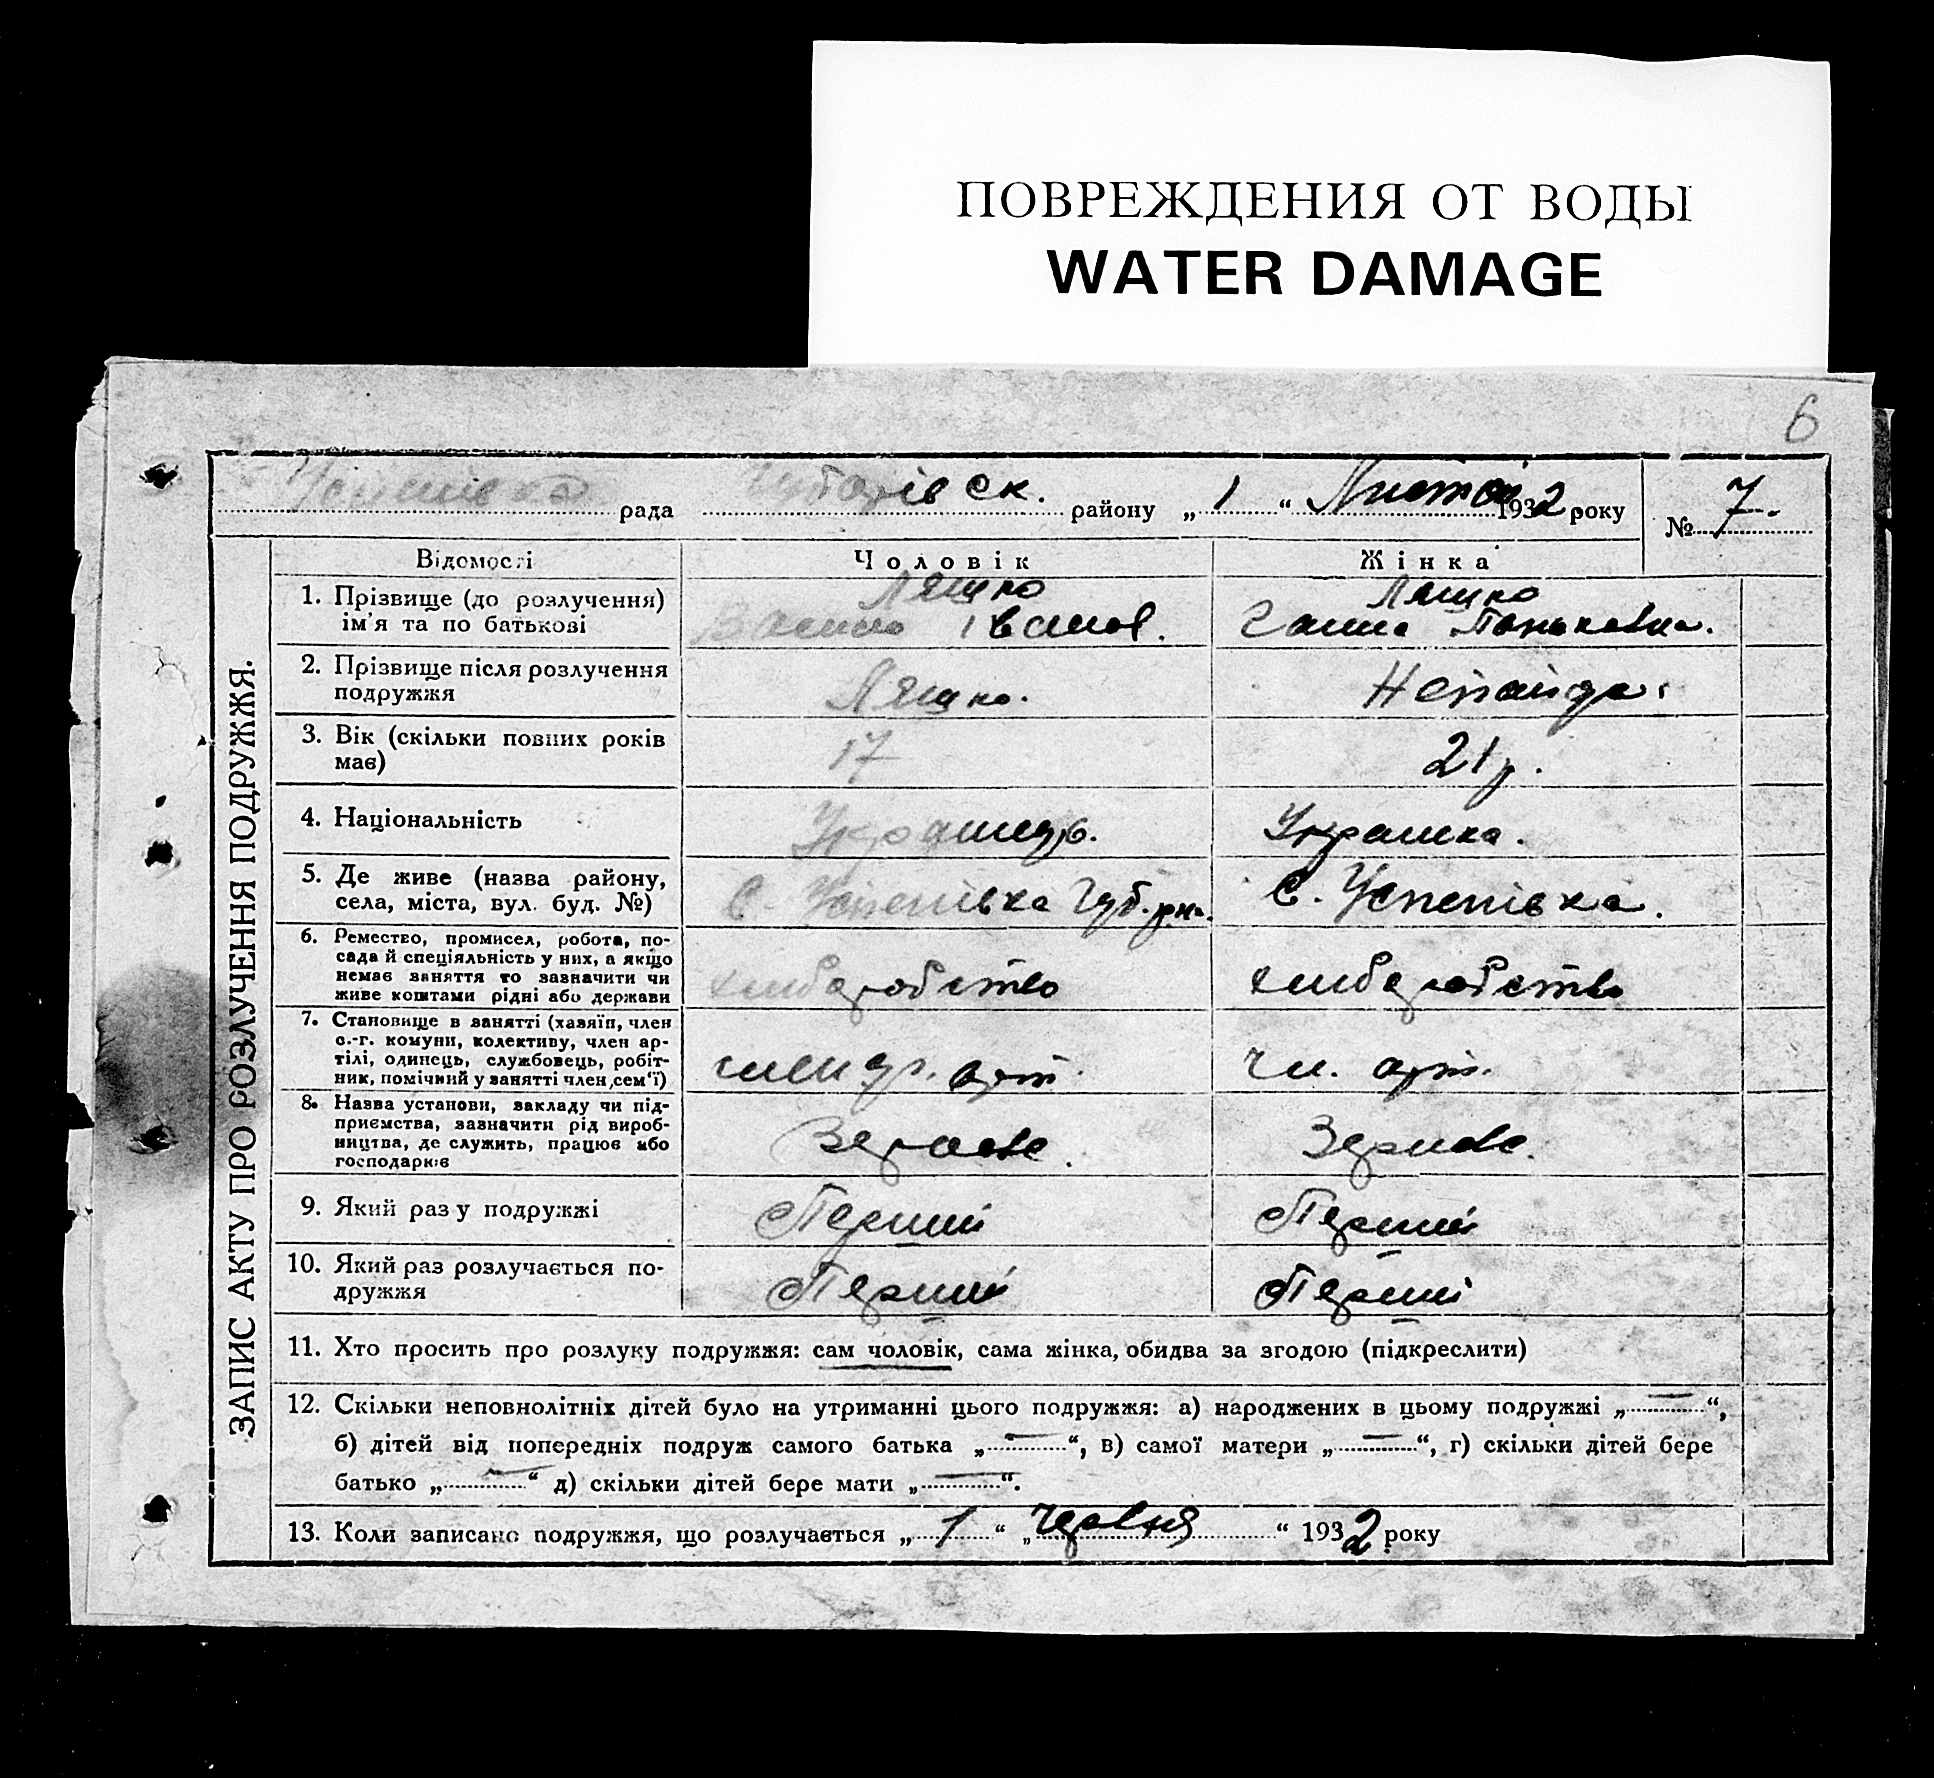 ПОВРЕЖДЕНИЯ ОТ ВОДЫ
WATER DAMAGE
6
Успенівка рада івск. району „ 1 “ Листоп 1932 року
№ 7.
ЗАПИС АКТУ ПРО РОЗЛУЧЕННЯ ПОДРУЖЖЯ.
Відомості Чоловік Жінка
1. Прізвище (до розлучення) Ляшко Ляшко
ім'я та по батькові Василь Іванов. Ганна Паньковна.
2. Прізвище після розлучення
подружжя Ляшко.
3. Вік (скільки повних років
має) 17 21 р.
4. Національність Українець. Українка.
5. Де живе (назва району,
села, міста, вул. буд. №) С. Успенівка Губ. рн. С. Успенівка.
6. Ремество, промисел, робота, по-
сада й спеціяльність у них, а якщо
немає заняття то зазначити чи
живе коштами рідні або держави хліборобство хліборобство
7. Становище в занятті (хазяїн, член
с.-г. комуни, колективу, член ар-
тілі, одинець, службовець, робіт-
ник, помічний у занятті член сем'ї) арт. чл. арт.
8. Назва установи, закладу чи під-
приємства, зазначити рід вироб-
ництва, де служить, працює або
господарює Зернове. Зернове.
9. Який раз у подружжі Перший Перший
10. Який раз розлучається по-
дружжя Перший Перший
11. Хто просить про розлуку подружжя: сам чоловік, сама жінка, обидва за згодою (підкреслити)
12. Скільки неповнолітніх дітей було на утриманні цього подружжя: а) народжених в цьому подружжі „ — “,
б) дітей від попередніх подруж самого батька „ — “, в) самої матери „ — “, г) скільки дітей бере
батько „ — “ д) скільки дітей бере мати „ — “.
13. Коли записано подружжя, що розлучається „ 1 “ „ Червня “ 1932 року